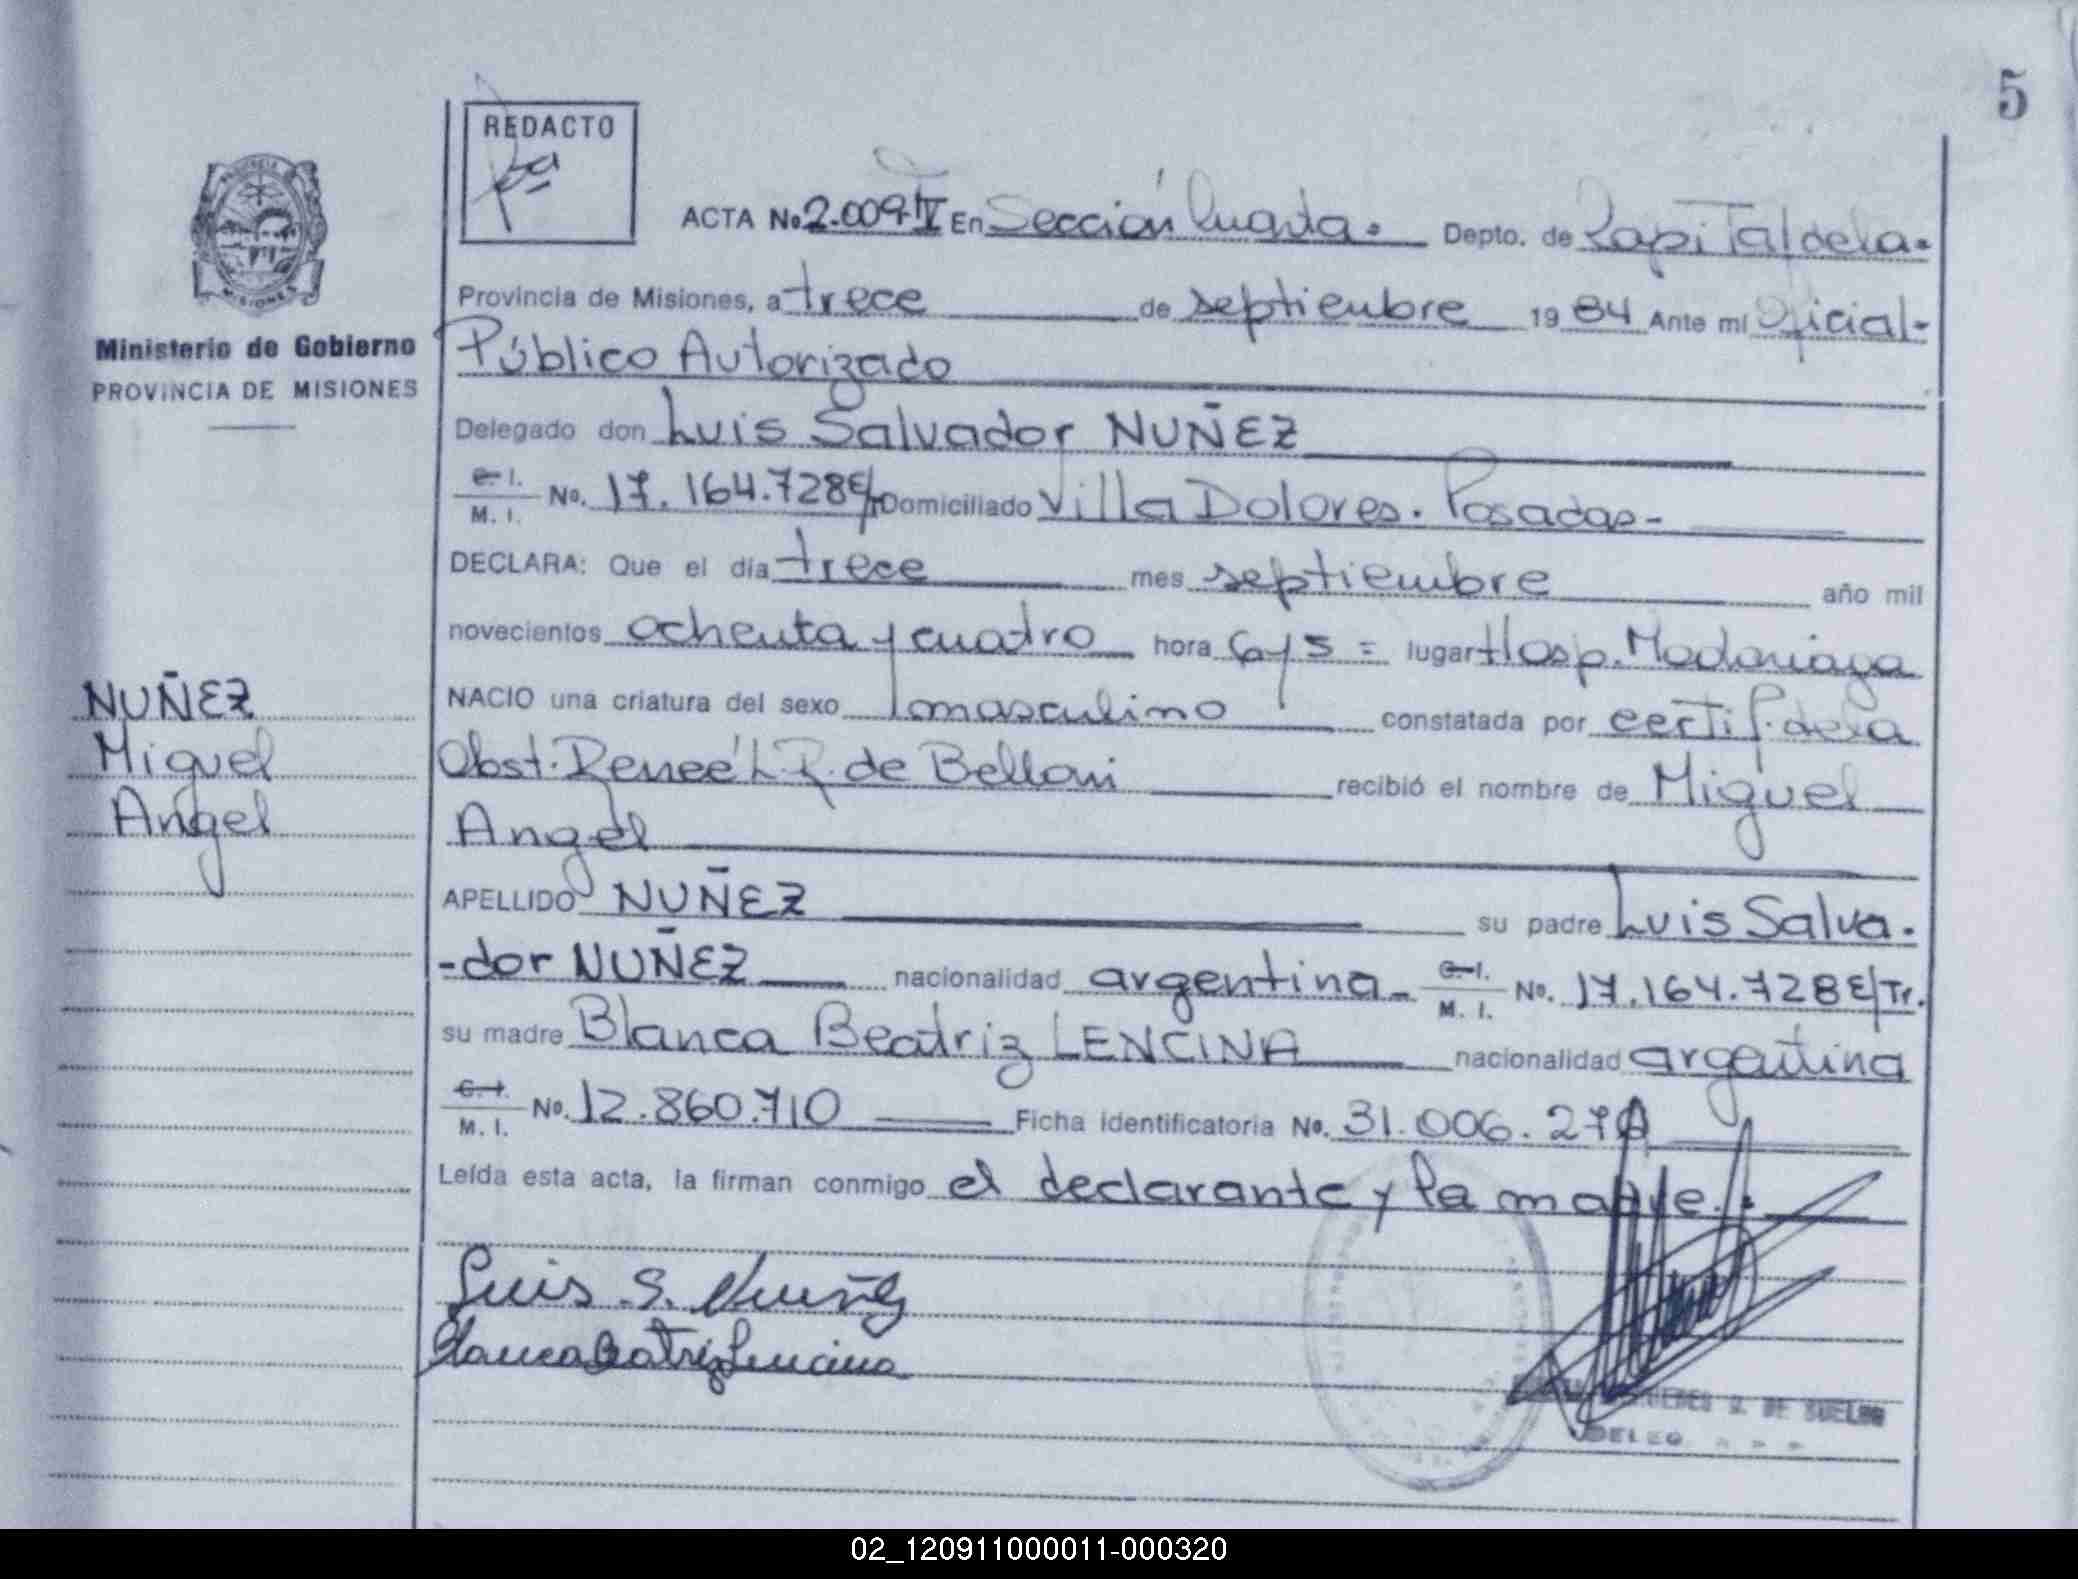 5
REDACTO
ACTA No. 2.009-IV En Sección Cuarta. Depto. de Capital de la.
PROVINCIA
MISIONES
Provincia de Misiones, a trece de septiembre 1984 Ante mí Oficial-
Ministerio de Gobierno
PROVINCIA DE MISIONES
Público Autorizado
Delegado don Luis Salvador NUÑEZ
C. I. / M. I. No. 17.164.728 E/Tr Domiciliado Villa Dolores. Posadas-
DECLARA: Que el día trece mes septiembre año mil
novecientos ochenta y cuatro hora 6 y 5 = lugar Hosp. Madariaga
NACIO una criatura del sexo masculino constatada por certif. de la
Obst. Reneé L. R. de Belloni recibió el nombre de Miguel
Angel
NUÑEZ
Miguel
Angel
APELLIDO NUÑEZ su padre Luis Salva.
-dor NUÑEZ nacionalidad argentina- C. I. / M. I. No. 17.164.728 E/Tr.
su madre Blanca Beatriz LENCINA nacionalidad argentina
C. I. / M. I. No. 12.860.710 Ficha identificatoria No. 31.006.27
Leída esta acta, la firman conmigo el declarante y la madre.
Luis S. Nuñez
Blanca Beatriz Lencina
DE SUELDO
DELEG.
02_120911000011-000320